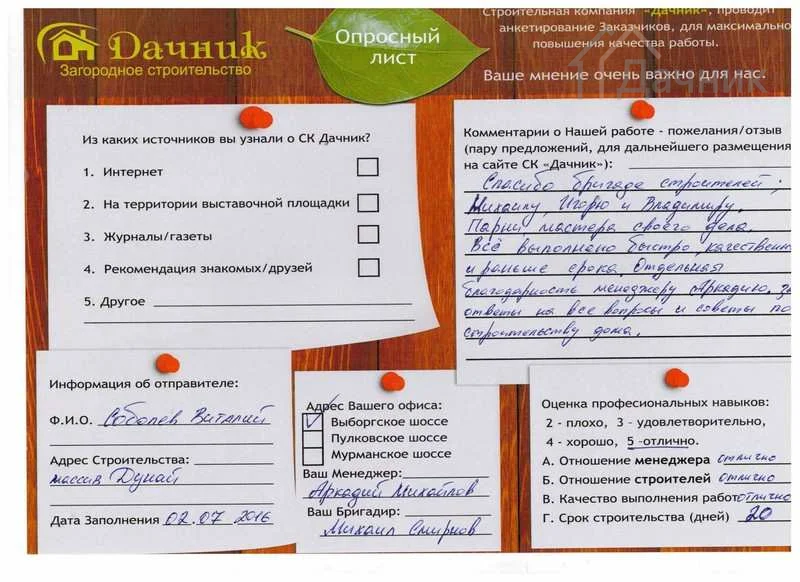 Дачник
Загородное строительство
Опросный
лист
Строительная компания "Дачник", проводит
анкетирование Заказчиков, для максимально
повышения качества работы.
Ваше мнение очень важно для нас.
Дачник
Из каких источников вы узнали о СК Дачник?
1. Интернет
2. На территории выставочной площадки
3. Журналы/газеты
4. Рекомендация знакомых/друзей
5. Другое
Комментарии о Нашей работе - пожелания/отзыв
(пару предложений, для дальнейшего размещения
на сайте СК «Дачник»):
Спасибо бригаде строителей:
Михаилу, Игорю и Владимиру.
Парни, мастера своего дела.
Всё выполнено быстро, качественн
и раньше срока. Отдельная
благодарность менеджеру Аркадию. За
ответы на все вопросы и советы по
строительству дома.
Информация об отправителе:
Ф.И.О. Соболев Виталий
Адрес Строительства:
массив Дунай
Дата Заполнения 02.07 2016
Адрес Вашего офиса:
Выборгское шоссе
Пулковское шоссе
Мурманское шоссе
Ваш Менеджер:
Аркадий Михайлов
Ваш Бригадир:
Михаил Смирнов
Оценка профессиональных навыков:
2 - плохо, 3 - удовлетворительно,
4 - хорошо, 5 -отлично.
А. Отношение менеджера отлично
Б. Отношение строителей отлично
В. Качество выполнения работ отлично
Г. Срок строительства (дней) 20